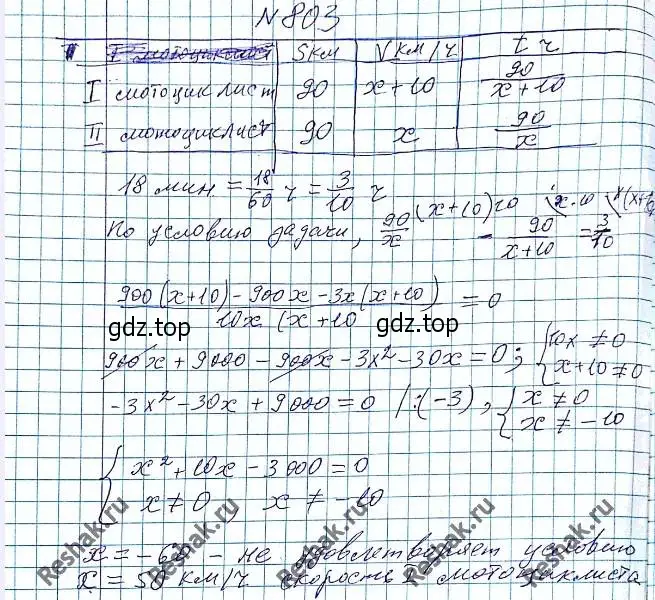 №803
S км V км/ч t ч
I мотоциклист 90 x+10 90/(x+10)
II мотоциклист 90 x 90/x
18 мин = 18/60 ч = 3/10 ч
По условию задачи, 90/x (x+10)10 - 90/(x+10) x·10 = 3/10
(900(x+10) - 900x - 3x(x+10))/(10x (x+10) = 0
gdz.top gdz.top
900x + 9000 - 900x - 3x² - 30x = 0; { 10x ≠ 0 x+10 ≠ 0
-3x² - 30x + 9000 = 0 /:(-3), { x ≠ 0 x ≠ -10
{ x² + 10x - 3000 = 0
x ≠ 0, x ≠ -10
x = -60 - не удовлетворяет условию
x = 50 км/ч скорость II мотоциклиста
Reshak.ru Reshak.ru Reshak.ru Reshak.ru